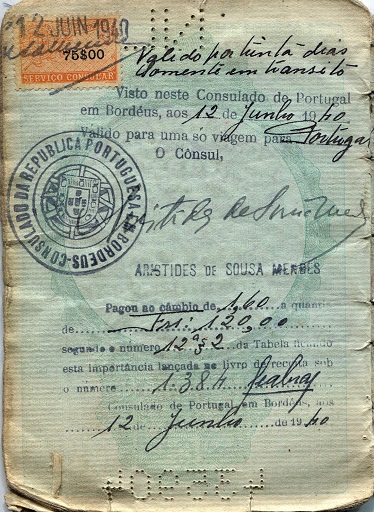 12 JUIN 1940
75$00
SERVIÇO CONSULAR
Valido por trinta dias
somente em transito
Visto neste Consulado de Portugal
em Bordéus, aos 12 de Junho 1940
Valido para uma só viagem para Portugal
O Cônsul,
CONSULADO DA REPUBLICA PORTUGUESA EM BORDEUS
Aristides de Sousa Mendes
ARISTIDES DE SOUSA MENDES
Pagou ao câmbio de 1,60 a quantia
de Frs: 120,00
segundo o número 12 da Tabela ficando
esta importância lançada no livro de receita sob
o número 1.384
Consulado de Portugal em Bordéus, aos
12 de Junho de 1940